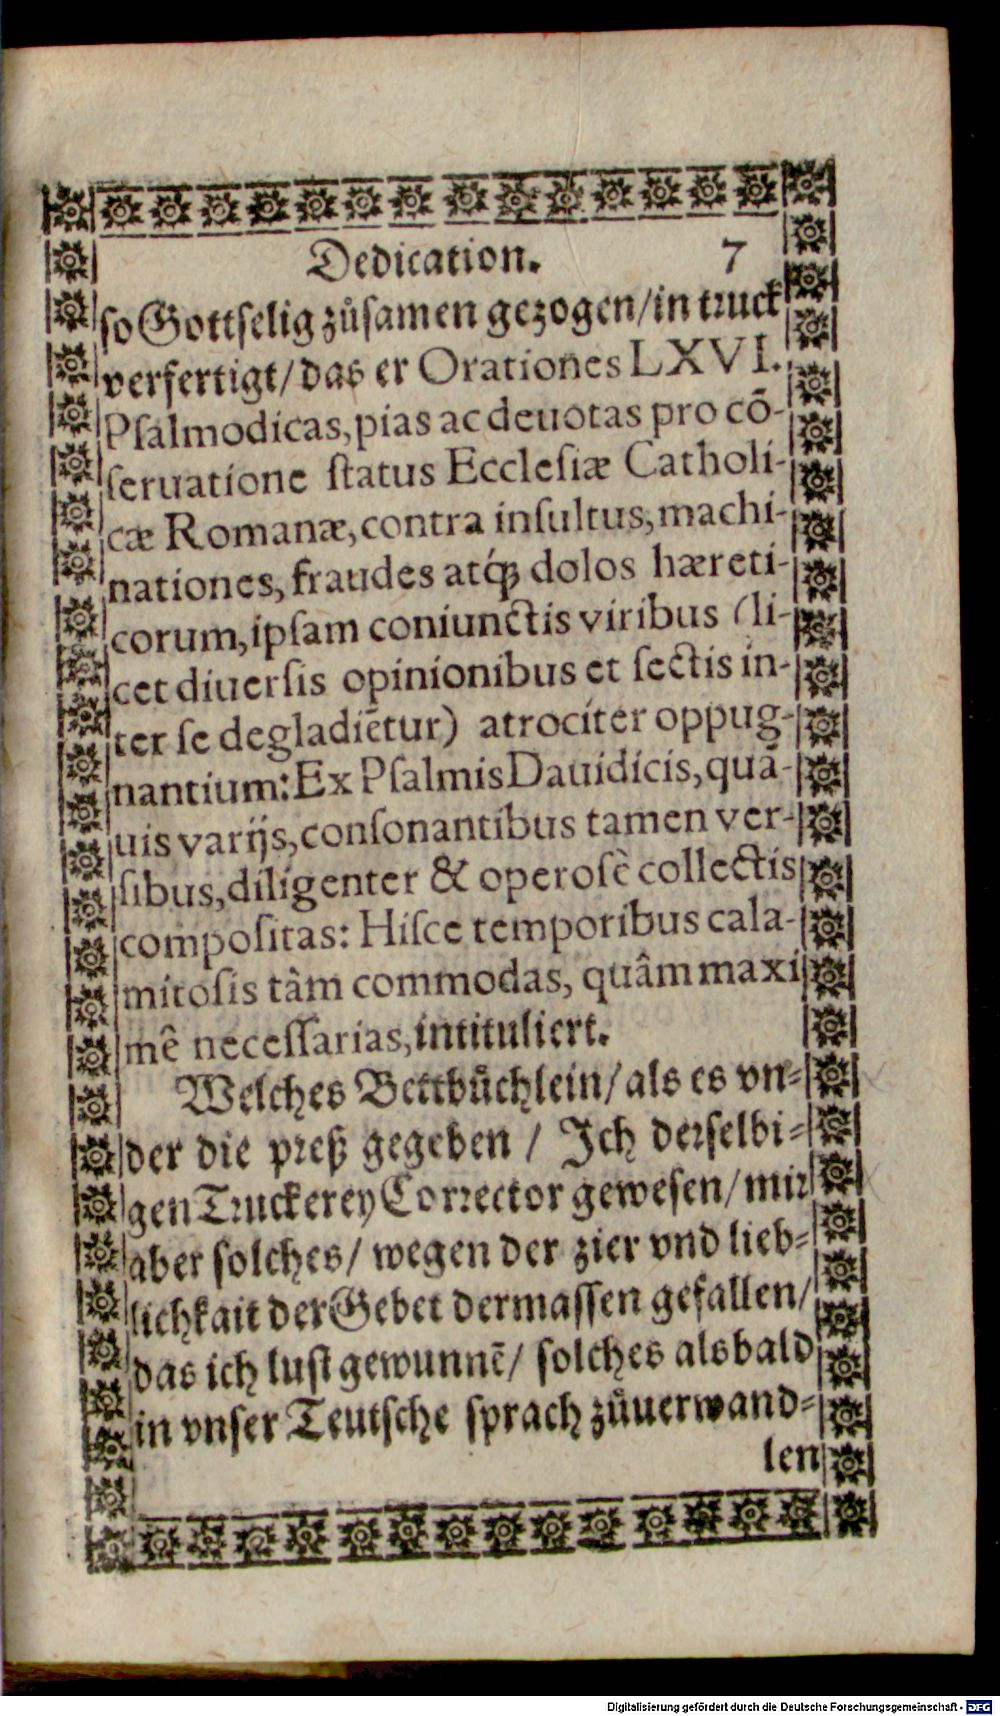 Dedication. 7
so Gottselig zůsamen gezogen/in truck
verfertigt/das er Orationes LXVI.
Pſalmodicas,pias ac deuotas pro cō-
ſeruatione ſtatus Eccleſiæ Catholi-
cæ Romanæ,contra inſultus,machi-
nationes, fraudes atq́ꝫ dolos hæreti-
corum,ipſam coniunctis viribus (li-
cet diuerſis opinionibus et ſectis in-
ter ſe degladiētur) atrociter oppug-
nantium: Ex Pſalmis Dauidicis,quā-
uis varijs,conſonantibus tamen ver-
ſibus,diligenter & operosè collectis
compoſitas: Hiſce temporibus cala-
mitoſis tâm commodas, quâm maxi
mê neceſſarias,intituliert.
Welches Bettbůchlein/als es vn-
der die preß gegeben / Ich derselbi-
gen Truckerey Corrector gewesen/mir
aber solches/ wegen der zier vnd lieb-
lichkait der Gebet dermassen gefallen/
das ich lust gewunnē/ solches alsbald
in vnser Teutsche sprach zůuerwand-
len
Digitalisierung gefördert durch die Deutsche Forschungsgemeinschaft - DFG